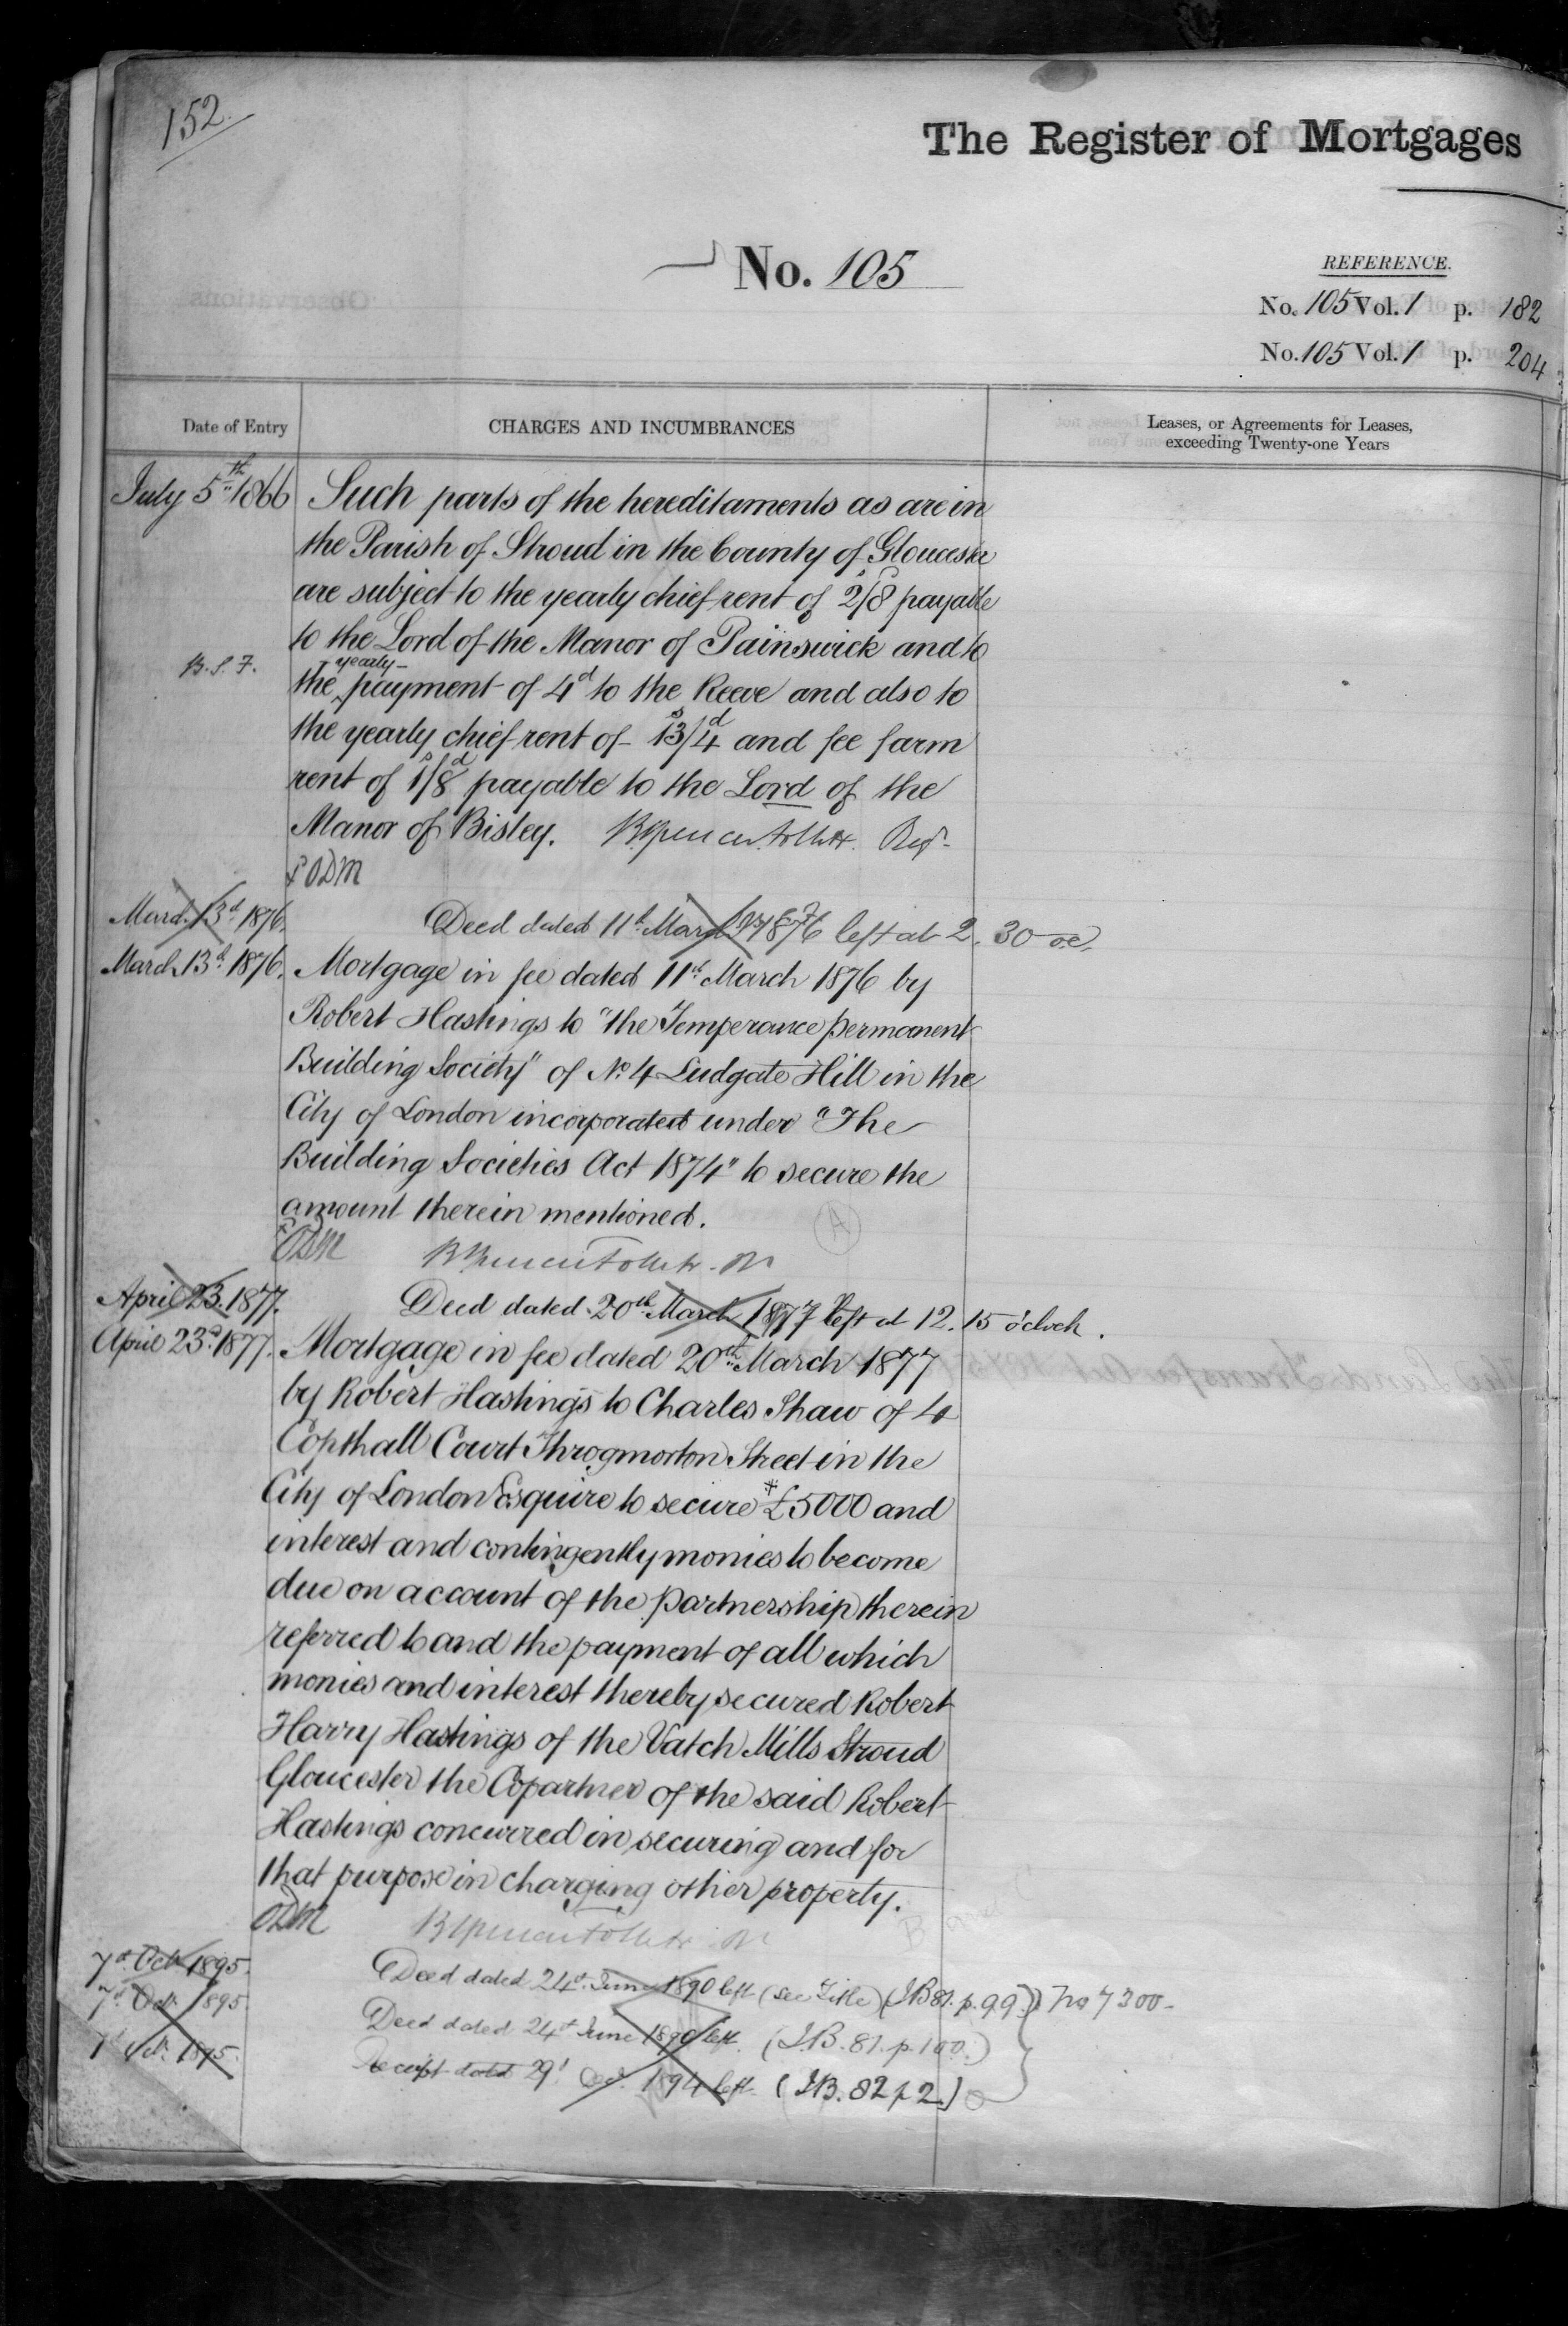 152.
The Register of Mortgages
No. 105
REFERENCE.
No. 105 Vol. 1 p. 182
No. 105 Vol. 1 p. 204
Date of Entry
CHARGES AND INCUMBRANCES
Leases, or Agreements for Leases,
exceeding Twenty-one Years
July 5th 1866 Such parts of the hereditaments as are in
the Parish of Stroud in the County of Gloucester
are subject to the yearly chief rent of 2s/8d payable
to the Lord of the Manor of Painswick and to
B.S.F. the yearly payment of 4d to the Reeve and also to
the yearly chief rent of 13s/4d and fee farm
rent of 1s/8d payable to the Lord of the
Manor of Bisley. Regr.
ODM
March 13th 1876. Deed dated 11th March 1876 left at 2.30 oc.
March 13th 1876. Mortgage in fee dated 11th March 1876 by
Robert Hastings to "the Temperance Permanent
Building Society" of No. 4 Ludgate Hill in the
City of London incorporated under "The
Building Societies Act 1874" to secure the
amount therein mentioned. A
ODM
April 23. 1877. Deed dated 20th March 1877 left at 12.15 o'clock.
April 23d. 1877. Mortgage in fee dated 20th March 1877
by Robert Hastings to Charles Shaw of 4
Copthall Court Throgmorton Street in the
City of London Esquire to secure *£5000 and
interest and contingently monies to become
due on account of the partnership therein
referred to and the payment of all which
monies and interest thereby secured Robert
Harry Hastings of the Vatch Mills Stroud
Gloucester the Copartner of the said Robert
Hastings concurred in securing and for
that purpose in charging other property.
ODM
7th Oct. 1895. Deed dated 24th June 1890 left (see Title) (I.B. 81. p. 99.) No 7300
7th Oct. 1895 Deed dated 24th June 1890 left. (I.B. 81. p. 100.)
7th Oct. 1895. Receipt dated 29th Oct. 1894 left. (I.B. 82 p 2.)